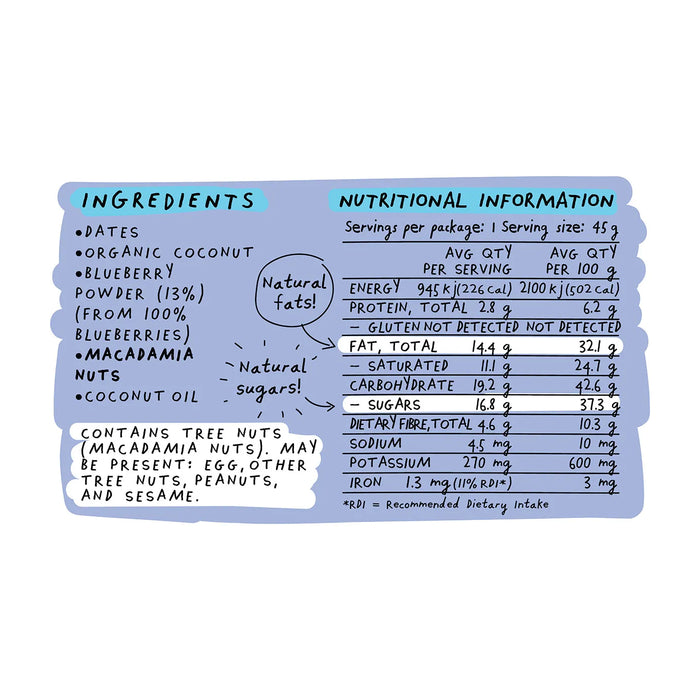 INGREDIENTS
•DATES
•ORGANIC COCONUT
•BLUEBERRY
POWDER (13%)
(FROM 100%
BLUEBERRIES)
•MACADAMIA
NUTS
•COCONUT OIL
CONTAINS TREE NUTS
(MACADAMIA NUTS). MAY
BE PRESENT: EGG, OTHER
TREE NUTS, PEANUTS,
AND SESAME.
Natural
fats!
Natural
sugars!
NUTRITIONAL INFORMATION
Servings per package: 1 Serving size: 45g
AVG QTY AVG QTY
PER SERVING PER 100 g
ENERGY 945 kj(226 cal) 2100 kj(502 cal)
PROTEIN, TOTAL 2.8 g 6.2 g
– GLUTEN NOT DETECTED NOT DETECTED
FAT, TOTAL 14.4 g 32.1 g
– SATURATED 11.1 g 24.7 g
CARBOHYDRATE 19.2 g 42.6 g
– SUGARS 16.8 g 37.3 g
DIETARY FIBRE, TOTAL 4.6 g 10.3 g
SODIUM 4.5 mg 10 mg
POTASSIUM 270 mg 600 mg
IRON 1.3 mg (11% RDI*) 3 mg
*RDI = Recommended Dietary Intake